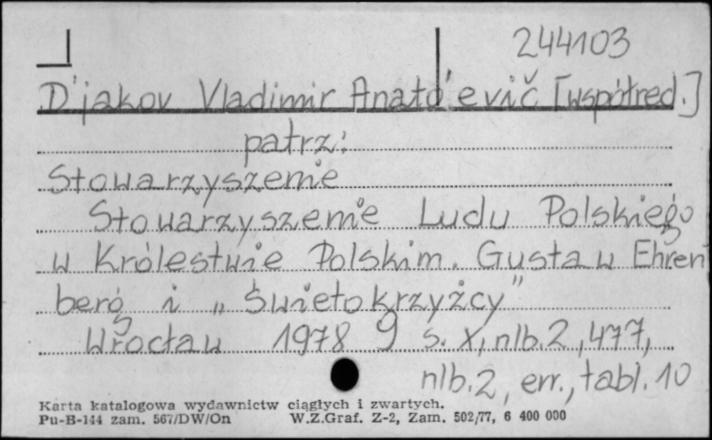 244103
D'jakov Vladimir Anatol'evič [współred.]
patrz:
Stowarzyszenie
Stowarzyszenie Ludu Polskiego
w Królestwie Polskim. Gustaw Ehren
berg i „Świętokrzyżcy"
Wrocław 1978 g s. X, nlb. 2, 477,
nlb. 2, err., tabl. 10
Karta katalogowa wydawnictw ciągłych i zwartych.
Pu-B-144 zam. 567/DW/On W.Z.Graf. Z-2, Zam. 502/77, 6 400 000